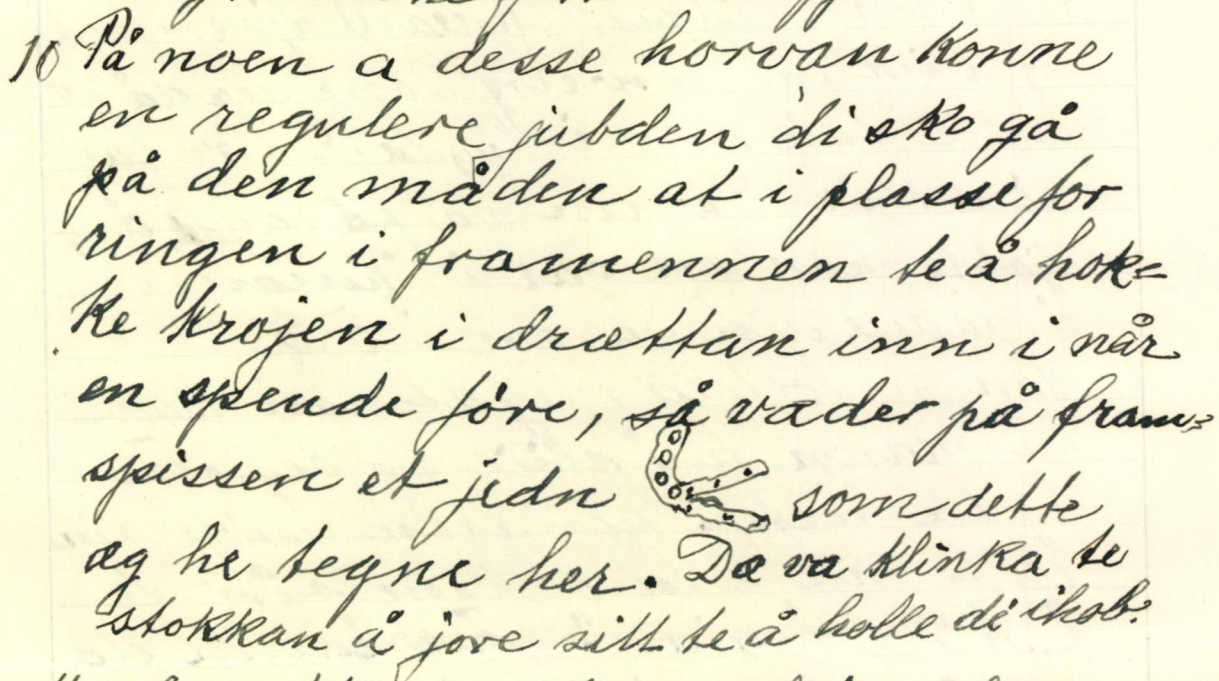 10 På noen a desse horvan konne
en regulere jubden di sko gå
på den måden at i plasse for
ringen i framennen te å hok=
ke krojen i drættan inn i når
en spende føre, så væder på fram=
spissen et jedn som dette
æg he tegne her. Dæ va klinka te
stokkan å jore sitt te å holle di ihob.